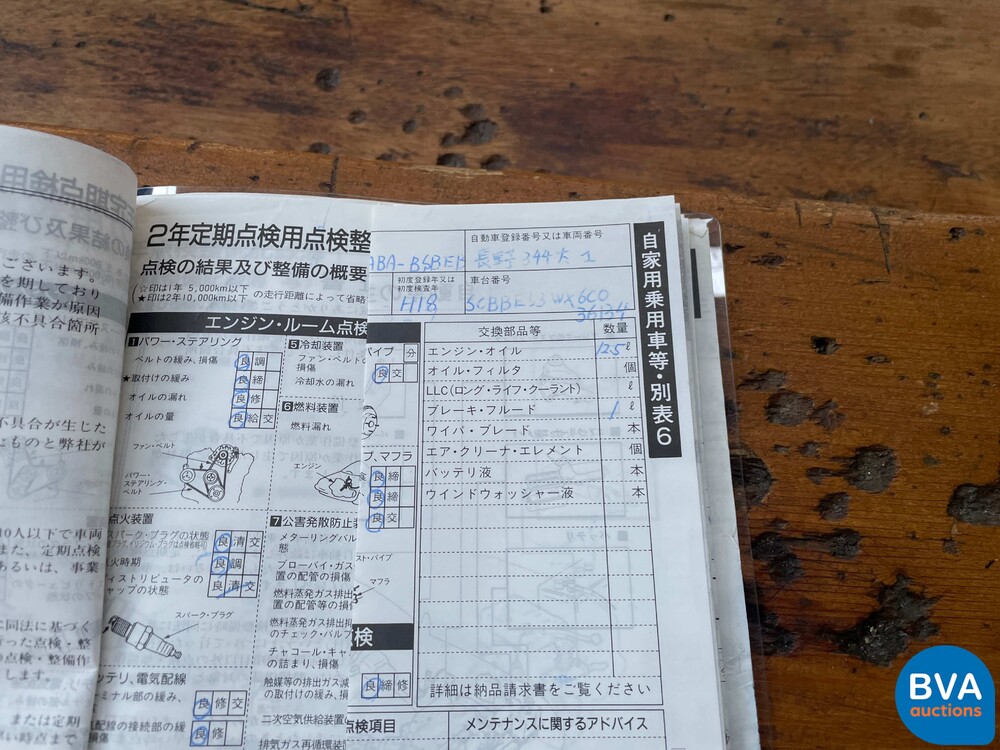 ございます。
を期しており
備作業が原因
該不具合箇所
不具合が生じた
たものと弊社が
10人以下で車両
また、定期点検
あるいは、事業
に同法に基づく
行った点検・整
の点検・整備作
します。
または定期
2年定期点検用点検整
点検の結果及び整備の概要
(☆印は1年 5,000km以下
★印は2年10,000km以下 の走行距離によって省略
エンジン・ルーム点検
1 パワー・ステアリング
ベルトの緩み、損傷 良 調
★取付けの緩み 良 締
オイルの漏れ 良 修
オイルの量 良 給 交
ファン・ベルト
パワー・
ステアリング・
ベルト
点火装置
スパーク・プラグの状態 良 清 交
火時期 良 調
ィストリビュータの
ャップの状態 良 清 交
スパーク・プラグ
ッテリ、電気配線
ーミナル部の緩み、 良 修 交
配線の接続部の緩 良 修
5 冷却装置
ファン・ベルトの
損傷
冷却水の漏れ
6 燃料装置
燃料漏れ
エンジン
7 公害発散防止装
メターリングバル
態
ブローバイ・ガス
置の配管の損傷
燃料蒸発ガス排出
置の配管等の損
燃料蒸発ガス排出
のチェック・バルブ
チャコール・キャ
の詰まり、損傷
触媒等の排出ガス減
の取付けの緩み、損
二次空気供給装置
排気ガス再循環装
パイプ 分
良 交
プ、マフラ
良 締
良 締
良 交
スト・パイプ
マフラ
検
良 締 修
点検項目
自動車登録番号又は車両番号
ABA-BSBEB 長野344
初度登録年又は
初度検査年
車台番号
H18
36134
交換部品等 数量
エンジン・オイル 12.5 ℓ
オイル・フィルタ 個
LLC(ロング・ライフ・クーラント) ℓ
ブレーキ・フルード 1 ℓ
ワイパ・ブレード 本
エア・クリーナ・エレメント 個
バッテリ液 本
ウインドウォッシャー液 本
詳細は納品請求書をご覧ください
メンテナンスに関するアドバイス
自家用乗用車等・別表6
BVA
auctions